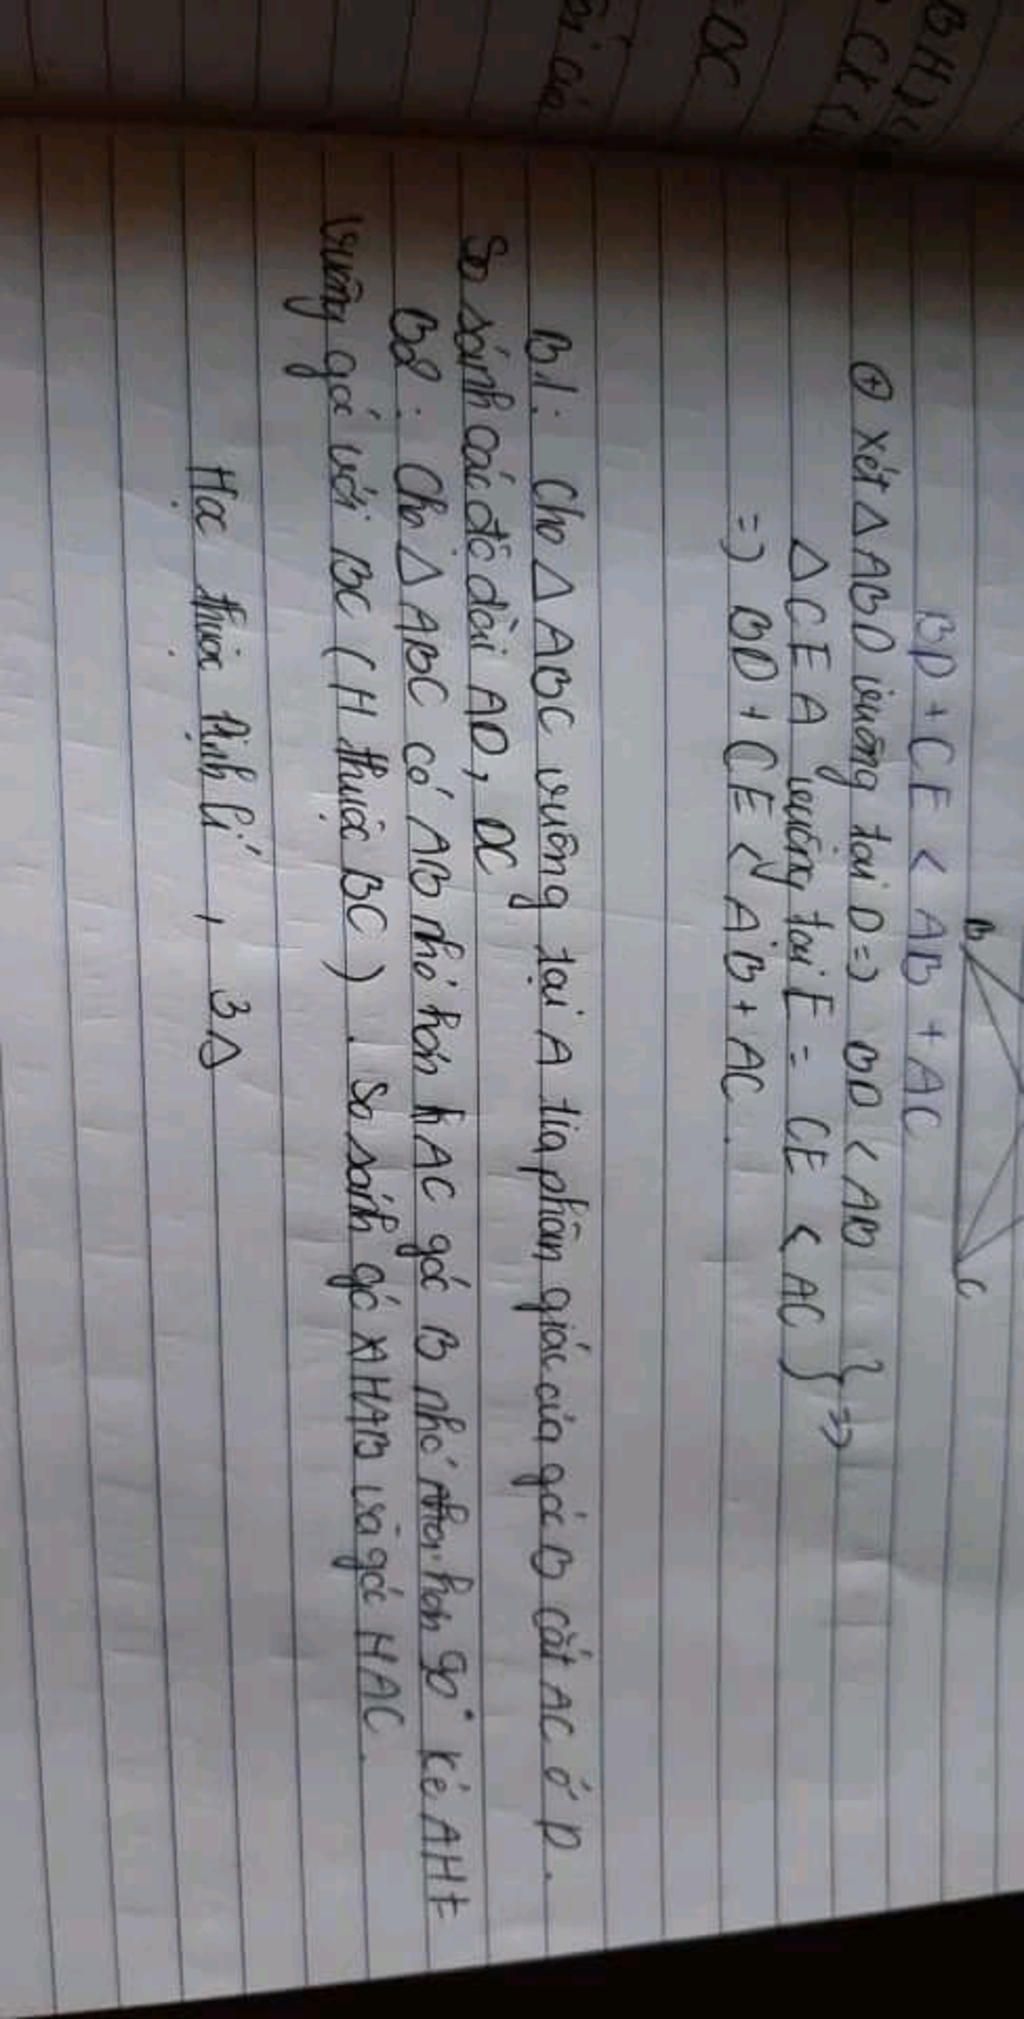 BD + CE < AB + AC
B
C
⊕ xét Δ ABD vuông tại D => BD < AB
Δ CEA vuông tại E = CE < AC } =>
=> BD + CE < AB + AC.
B1: Cho Δ ABC vuông tại A tia phân giác của góc B cắt AC ở D.
So sánh các độ dài AD, DC
B2: Cho Δ ABC có AB nhỏ hơn AC góc B nhỏ hơn 90° kẻ AH
vuông gó với BC (H thuộc BC). So sánh gó HAB và góc HAC.
Học thuộc Định lí, 3Δ
DC